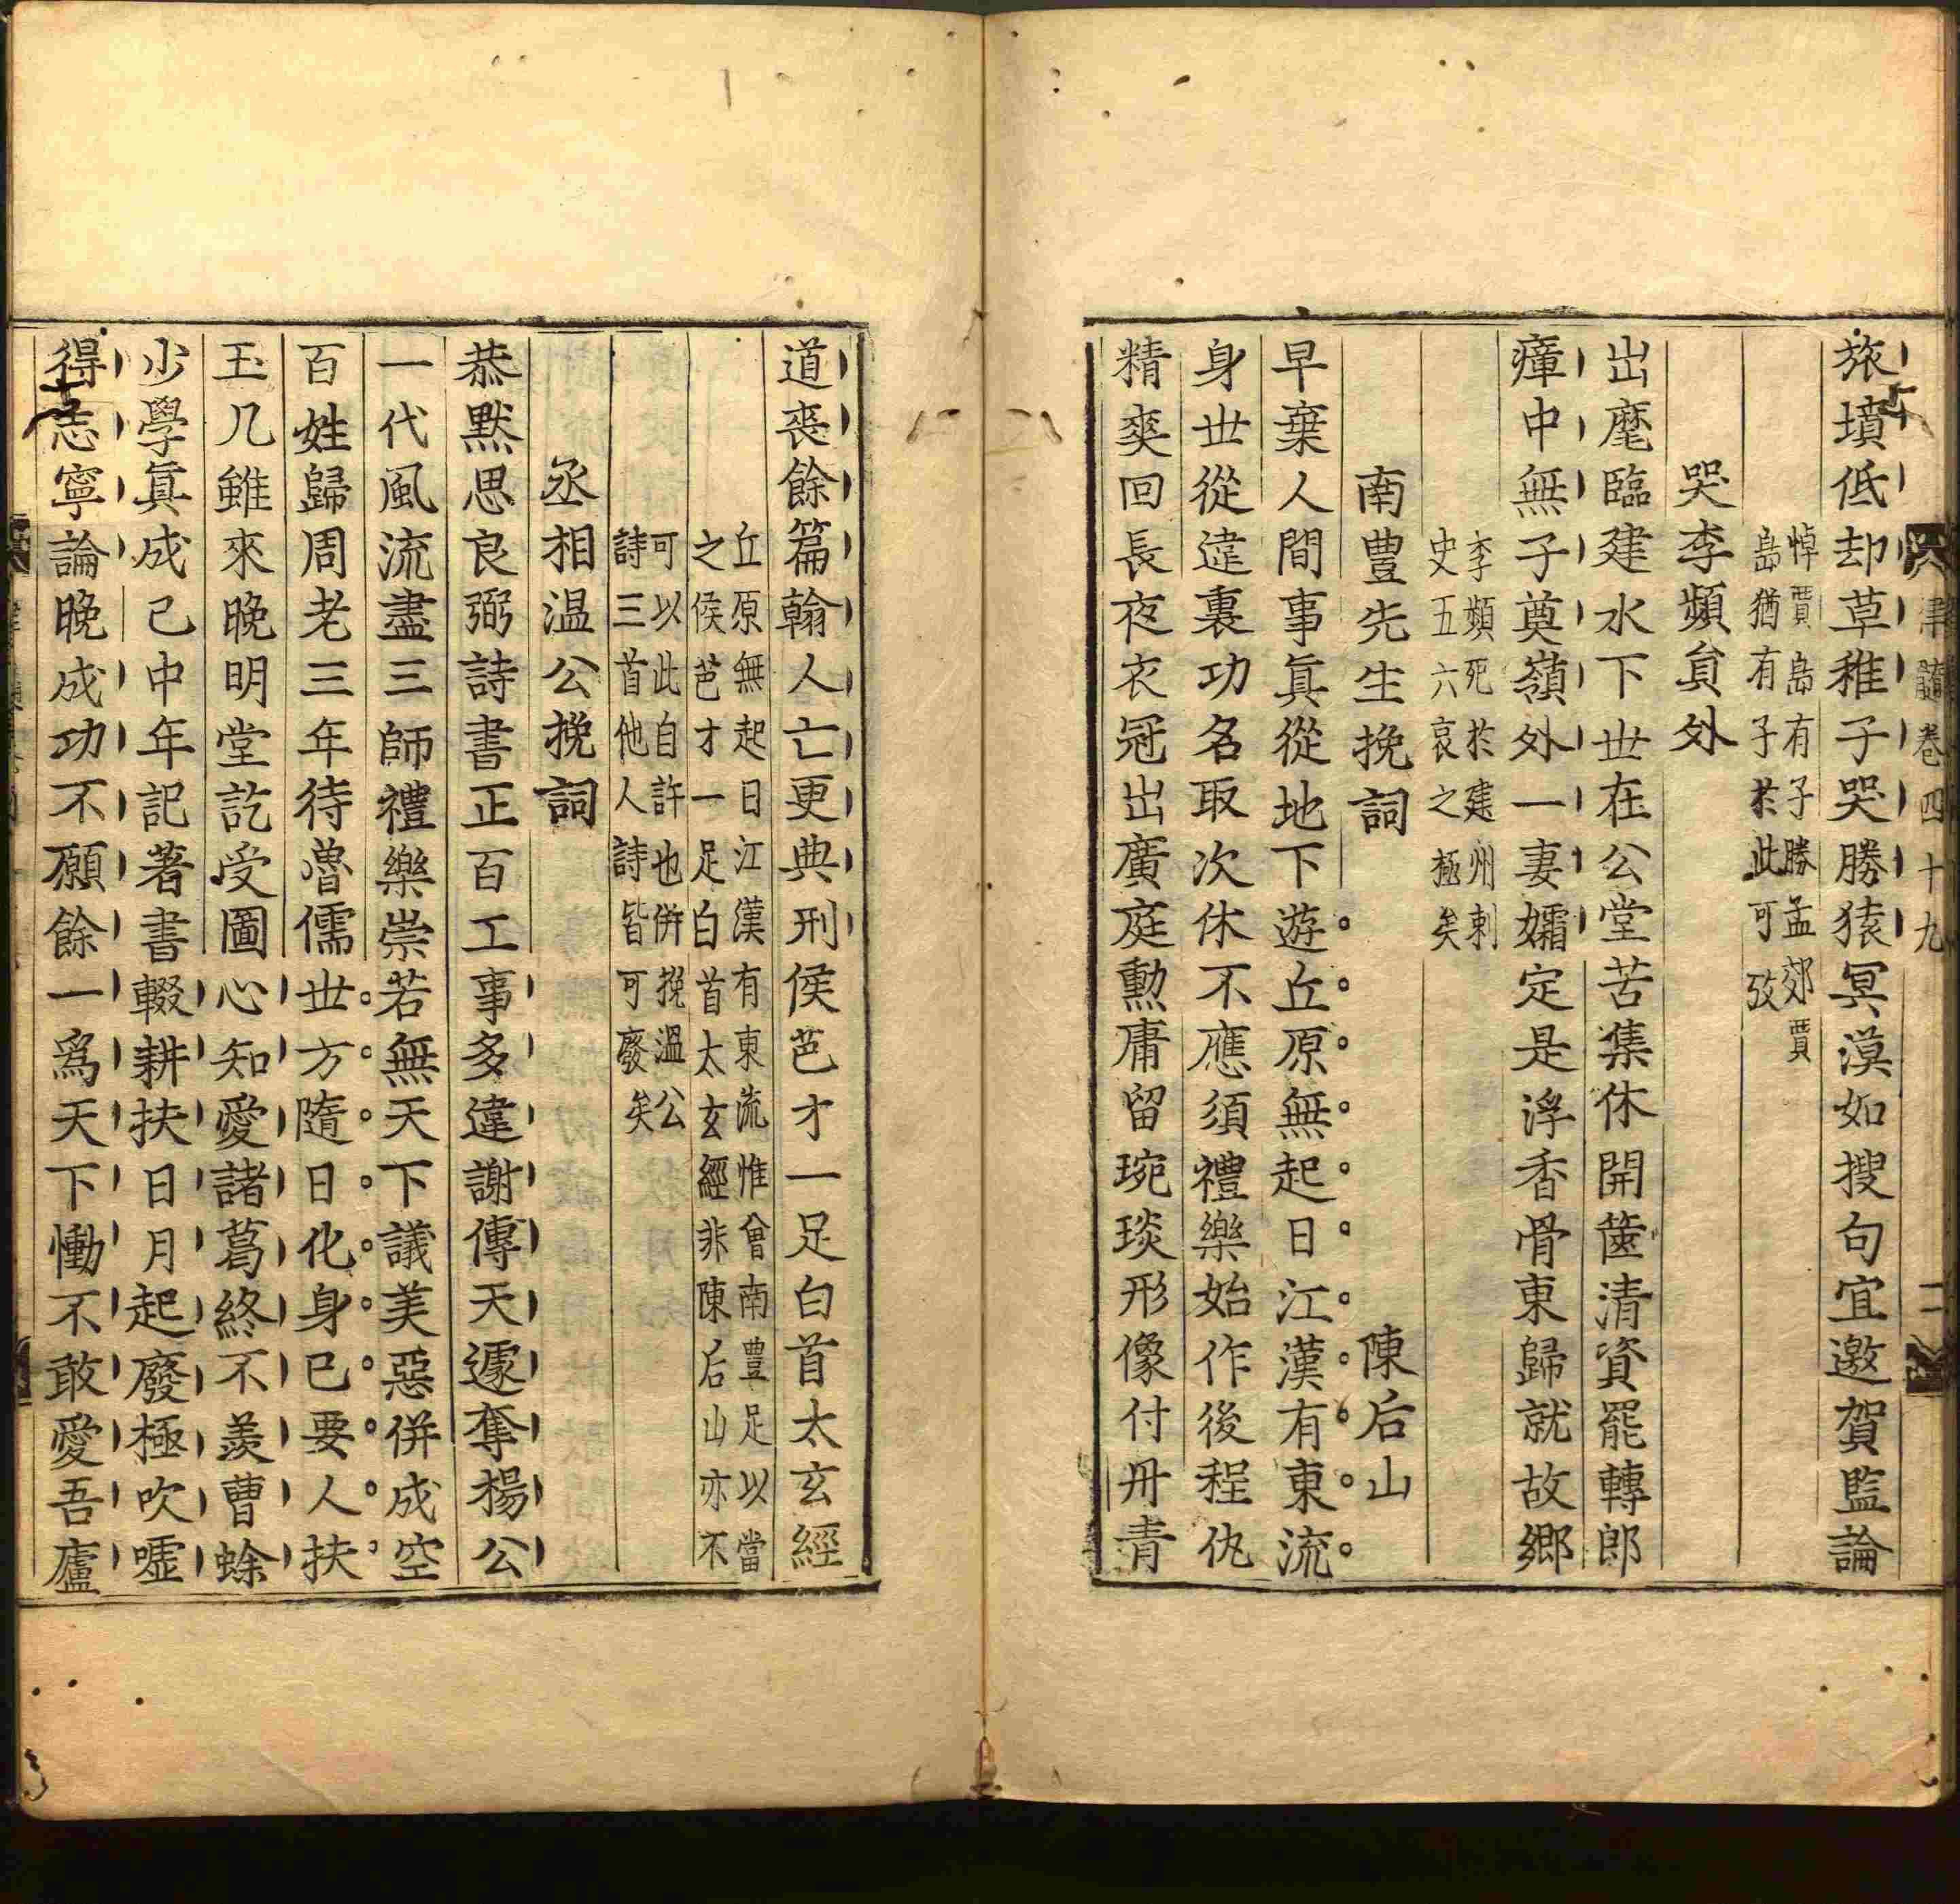 律髓卷四十九 二
旅墳低却草稚子哭勝猿冥漠如搜句宜邀賀監論
悼賈島有子勝孟郊賈
島猶有子於此可攷
哭李頻負外
出麾臨建水下世在公堂苦集休開篋清資罷轉郎
瘴中無子奠嶺外一妻孀定是浮香骨東歸就故鄉
李頻死於建州刺
史五六哀之極矣
南豊先生挽詞 陳后山
早棄人間事真從地下遊丘原無起日江漢有東流
身世從違裏功名取次休不應須禮樂始作後程仇
精爽回長夜衣冠出廣庭勲庸留琬琰形像付丹青
道喪餘篇翰人亡更典刑侯芭才一足白首太玄經
丘原無起日江漢有東流惟曾南豊足以當
之侯芭才一足白首太玄經非陳后山亦不
可以此自許也併挽溫公
詩三首他人詩皆可廢矣
丞相温公挽詞
恭默思良弼詩書正百工事多違謝傅天遽奪楊公
一代風流盡三師禮樂崇若無天下議美惡併成空
百姓歸周老三年待魯儒世方隨日化身已要人扶
玉几雖來晚明堂訖受圖心知愛諸葛終不羨曹蜍
少學真成己中年記著書輟耕扶日月起廢極吹噓
得志寧論晚成功不願餘一爲天下慟不敢愛吾廬